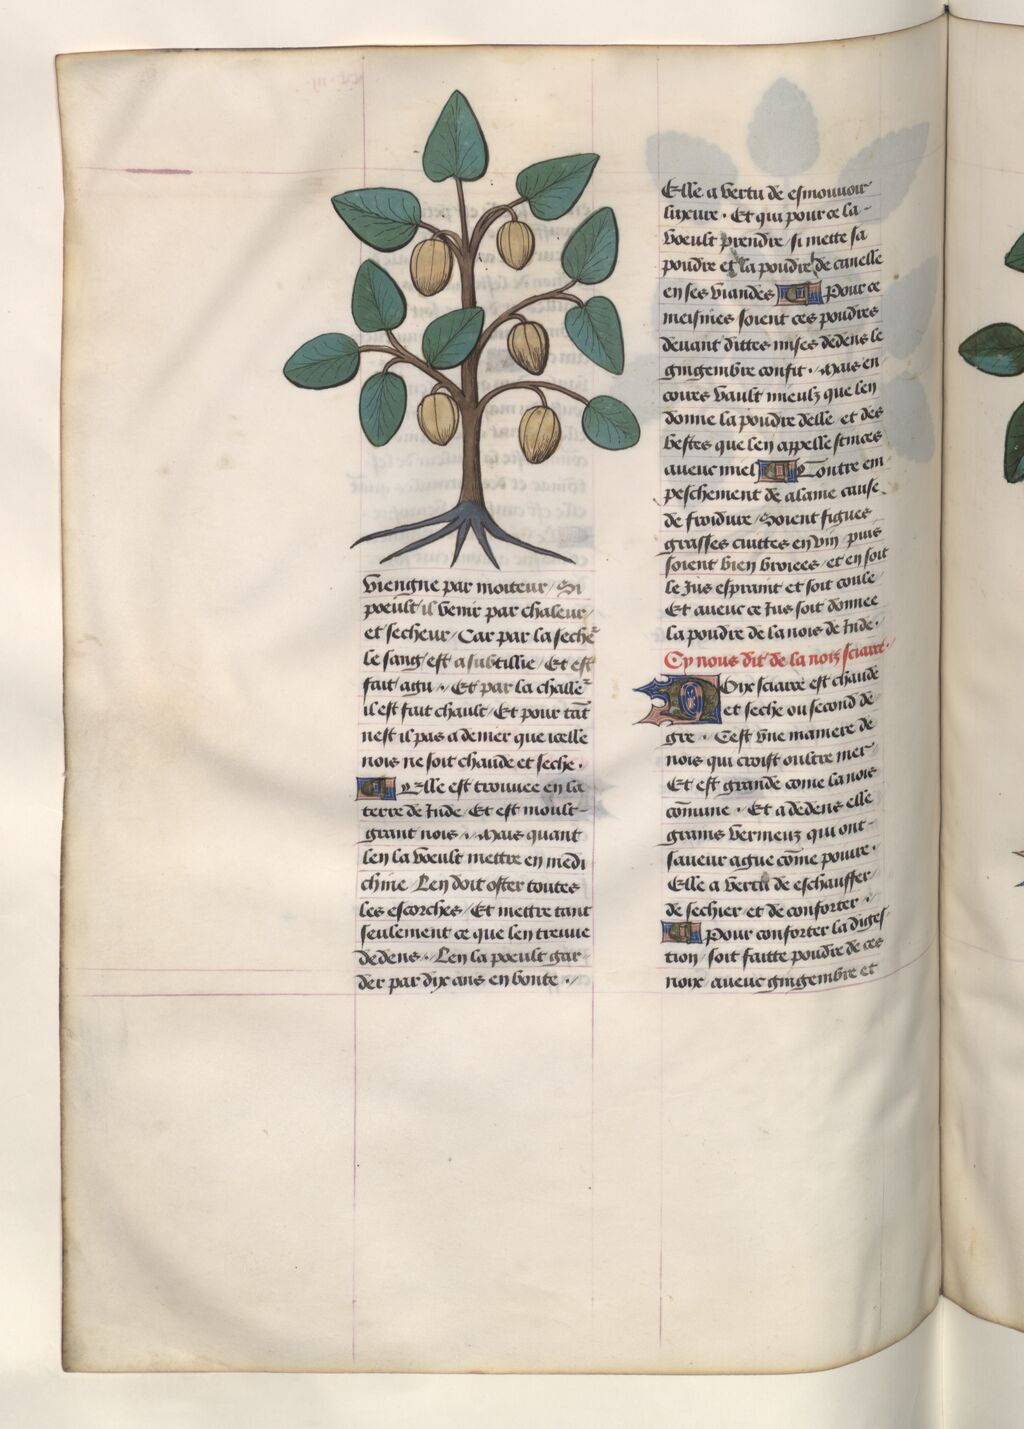 viengne par moiteur / Si
poeult il venir par chaleur /
et secheur / Car par la seche
le sang est asubtillie / Et est
fait agu · / Et par la challe
il est fait chault / Et pour tāt
nest il pas a denier que icelle
nois ne soit chaude et seche ·
Elle est trouuee en la
terre de Inde / Et est moult
grant nois · / Mais quant
len la voeult mettre en medi
chine / Len doit oster toutes
les escorches / Et mettre tant
seulement ce que len treuue
dedens · Len la poeult gar
der par dix ans en bonte ·
Elle a vertu de esmouuoir
luxure · Et qui pour ce la
voeult prendre / si mette sa
poudre et la poudre de canelle
en ses viandes Pour ce
meismes soient ces poudres
deuant dittes mises dedens le
gingembre confit · / Mais en
cores vault mieulz que len
donne la poudre delle et des
bestes que len appelle stinces
aueuc miel Contre em
peschement de alaine cause
de froidure / Soient figues
grasses cuittes en vin puis
soient bien broiees / et en soit
le Jus espraint et soit coule
Et aueuc ce Jus soit donnee
la poudre de la nois de Inde ·
Cy nous dit de la noix sciarre ·
Noix sciarre est chaude
et seche ou second de
gre · Cest vne maniere de
nois qui croist oultre mer
Et est grande come la nois
cōmune · Et a dedens elle
grains vermeuz qui ont
saueur ague cōme poiure ·
Elle a vertu de eschauffer /
de sechier et de conforter ·
Pour conforter la diges
tion / soit faitte poudre de ces
noix auueuc gingembre et